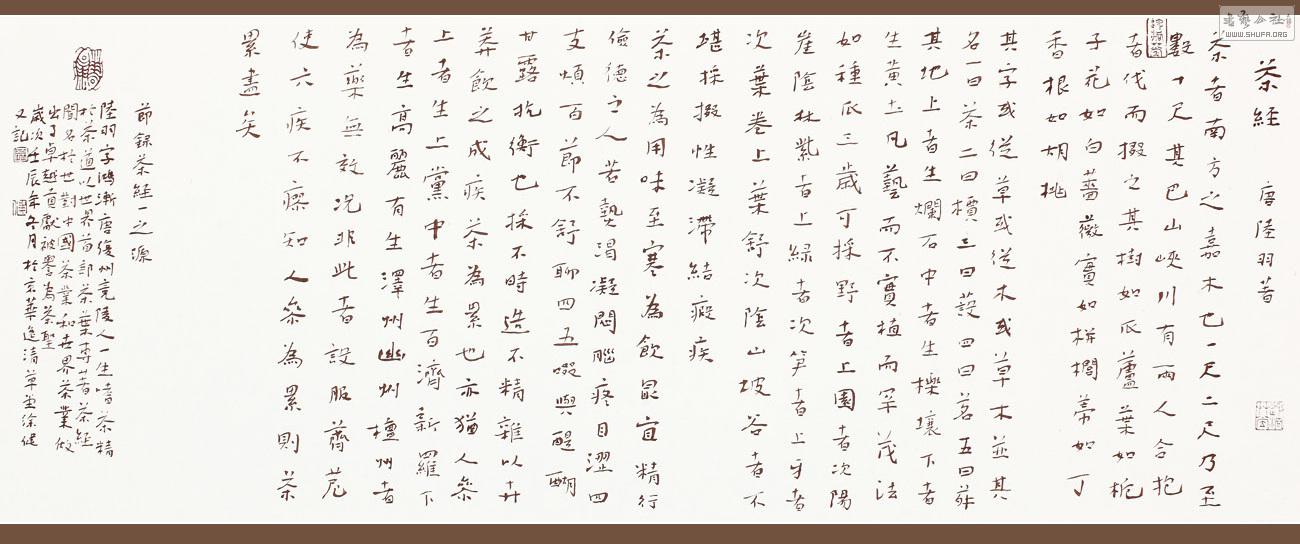 茶經 唐陸羽著
茶者南方之嘉木也一尺二尺乃至
數十尺其巴山峽川有兩人合抱
者伐而掇之其樹如瓜蘆葉如梔
子花如白薔薇實如栟櫚蒂如丁
香根如胡桃
其字或從草或從木或草木並其
名一曰茶二曰檟三曰蔎四曰茗五曰荈
其地上者生爛石中者生櫟壤下者
生黃土凡藝而不實植而罕茂法
如種瓜三歲可採野者上園者次陽
崖陰林紫者上綠者次笋者上牙者
次葉卷上葉舒次陰山坡谷者不
堪採掇性凝滯結瘕疾
茶之為用味至寒為飲最宜精行
儉德之人若熱渴凝悶腦疼目澀四
支煩百節不舒聊四五啜與醍醐
甘露抗衡也採不時造不精雜以卉
莽飲之成疾茶為累也亦猶人參
上者生上黨中者生百濟新羅下
者生高麗有生澤州幽州檀州者
為藥無效況非此者設服薺苨
使六疾不瘳知人參為累則茶
累盡矣
節錄茶經一之源
陸羽字鴻漸唐復州竟陵人一生嗜茶精
於茶道以世界首部茶葉專著茶經
聞名於世對中國茶業和世界茶業做
出了卓越貢獻被譽為茶聖
歲次壬辰年冬月於京華逸清草堂徐健
又記
WWW.SHUFA.ORG